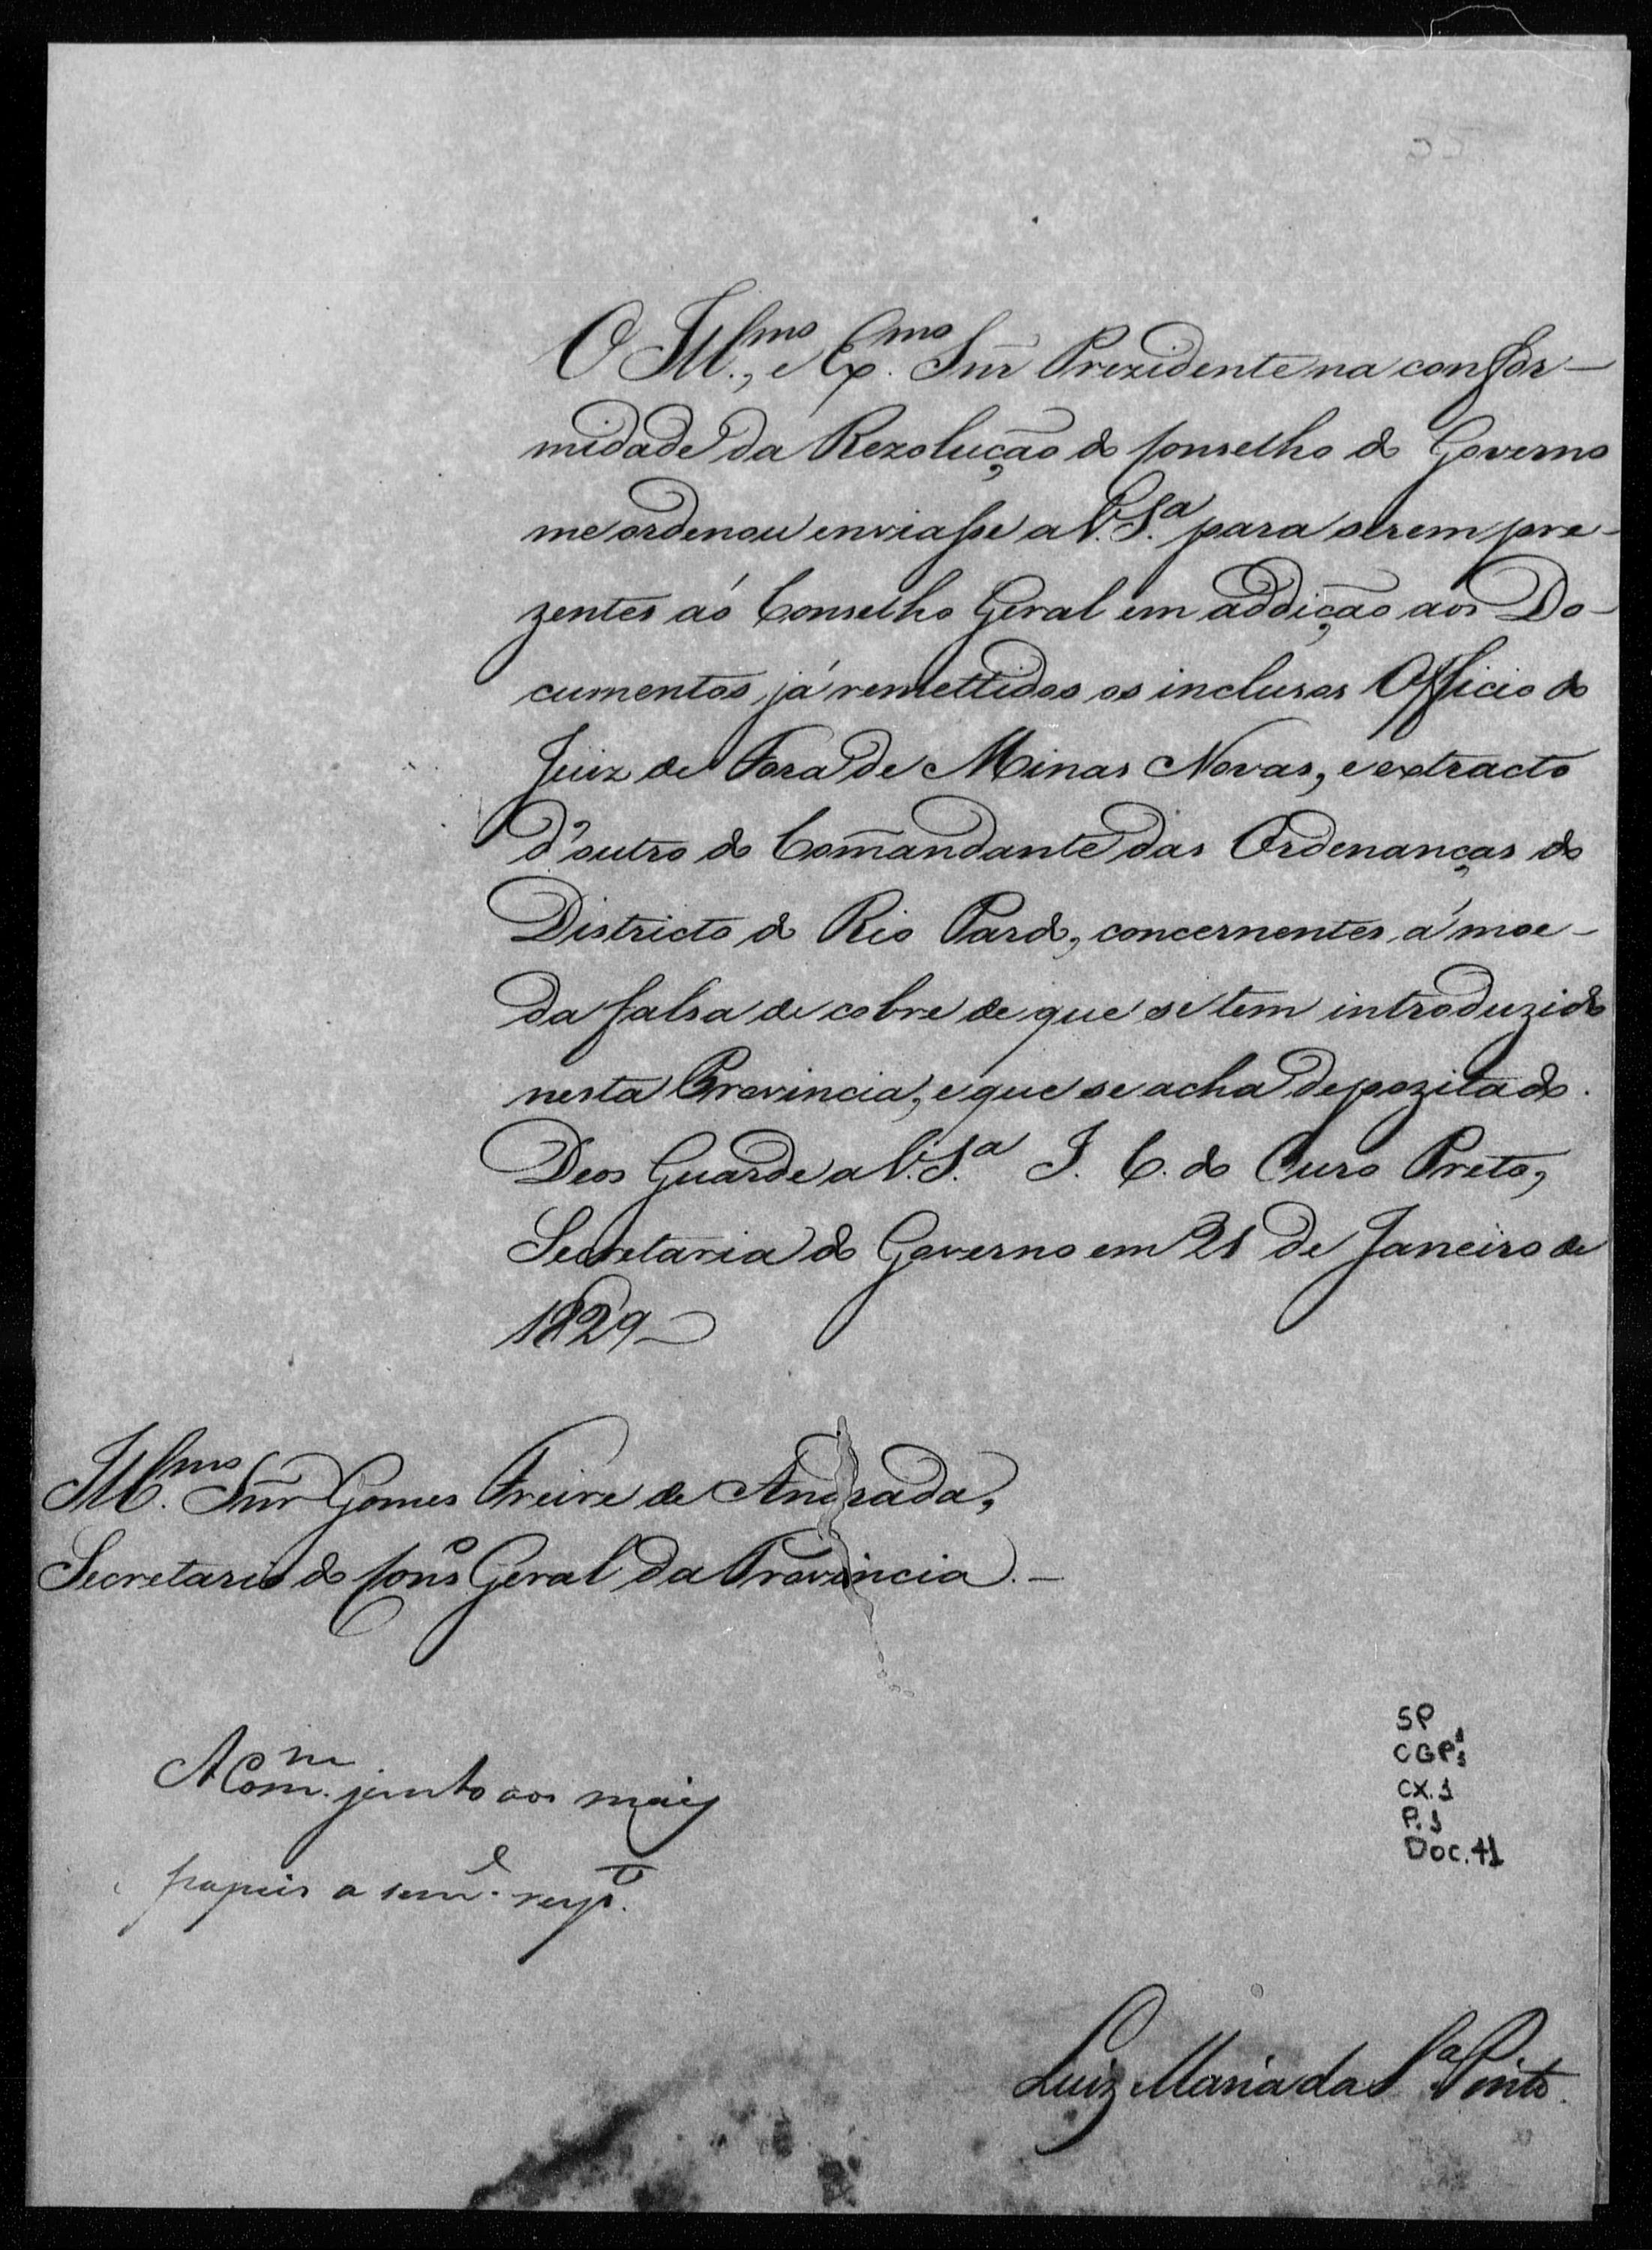 O Ill.mo, e Ex.mo Snr Prezidente na confor-
midade da Rezolução do Conselho do Governo
me ordenou enviasse a V. S.a para serem pre-
zentes aó Conselho Geral em addição aos Do-
cumentos já remettidos os inclusos Officio do
Juiz de Fora de Minas Novas, e extracto
d'outro do Com̃andante das Ordenanças do
Districto do Rio Pardo, concernentes á moe-
da falsa de cobre de que se tem introduzido
nesta Provincia, e que se acha depozitado.
Deos Guarde a V. S.a I. C. do Ouro Preto,
Secretaria do Governo em 21 de Janeiro de
1829
Ill.mo Snr Gomes Freire de Andrada,
Secretario do Cons.o Geral da Provincia.
A Com.m junto aos mais
papeis a sem.e resp.o
SP
CGP1
CX. 1
P. 1
Doc. 41
Luiz Maria da S.a Pinto.